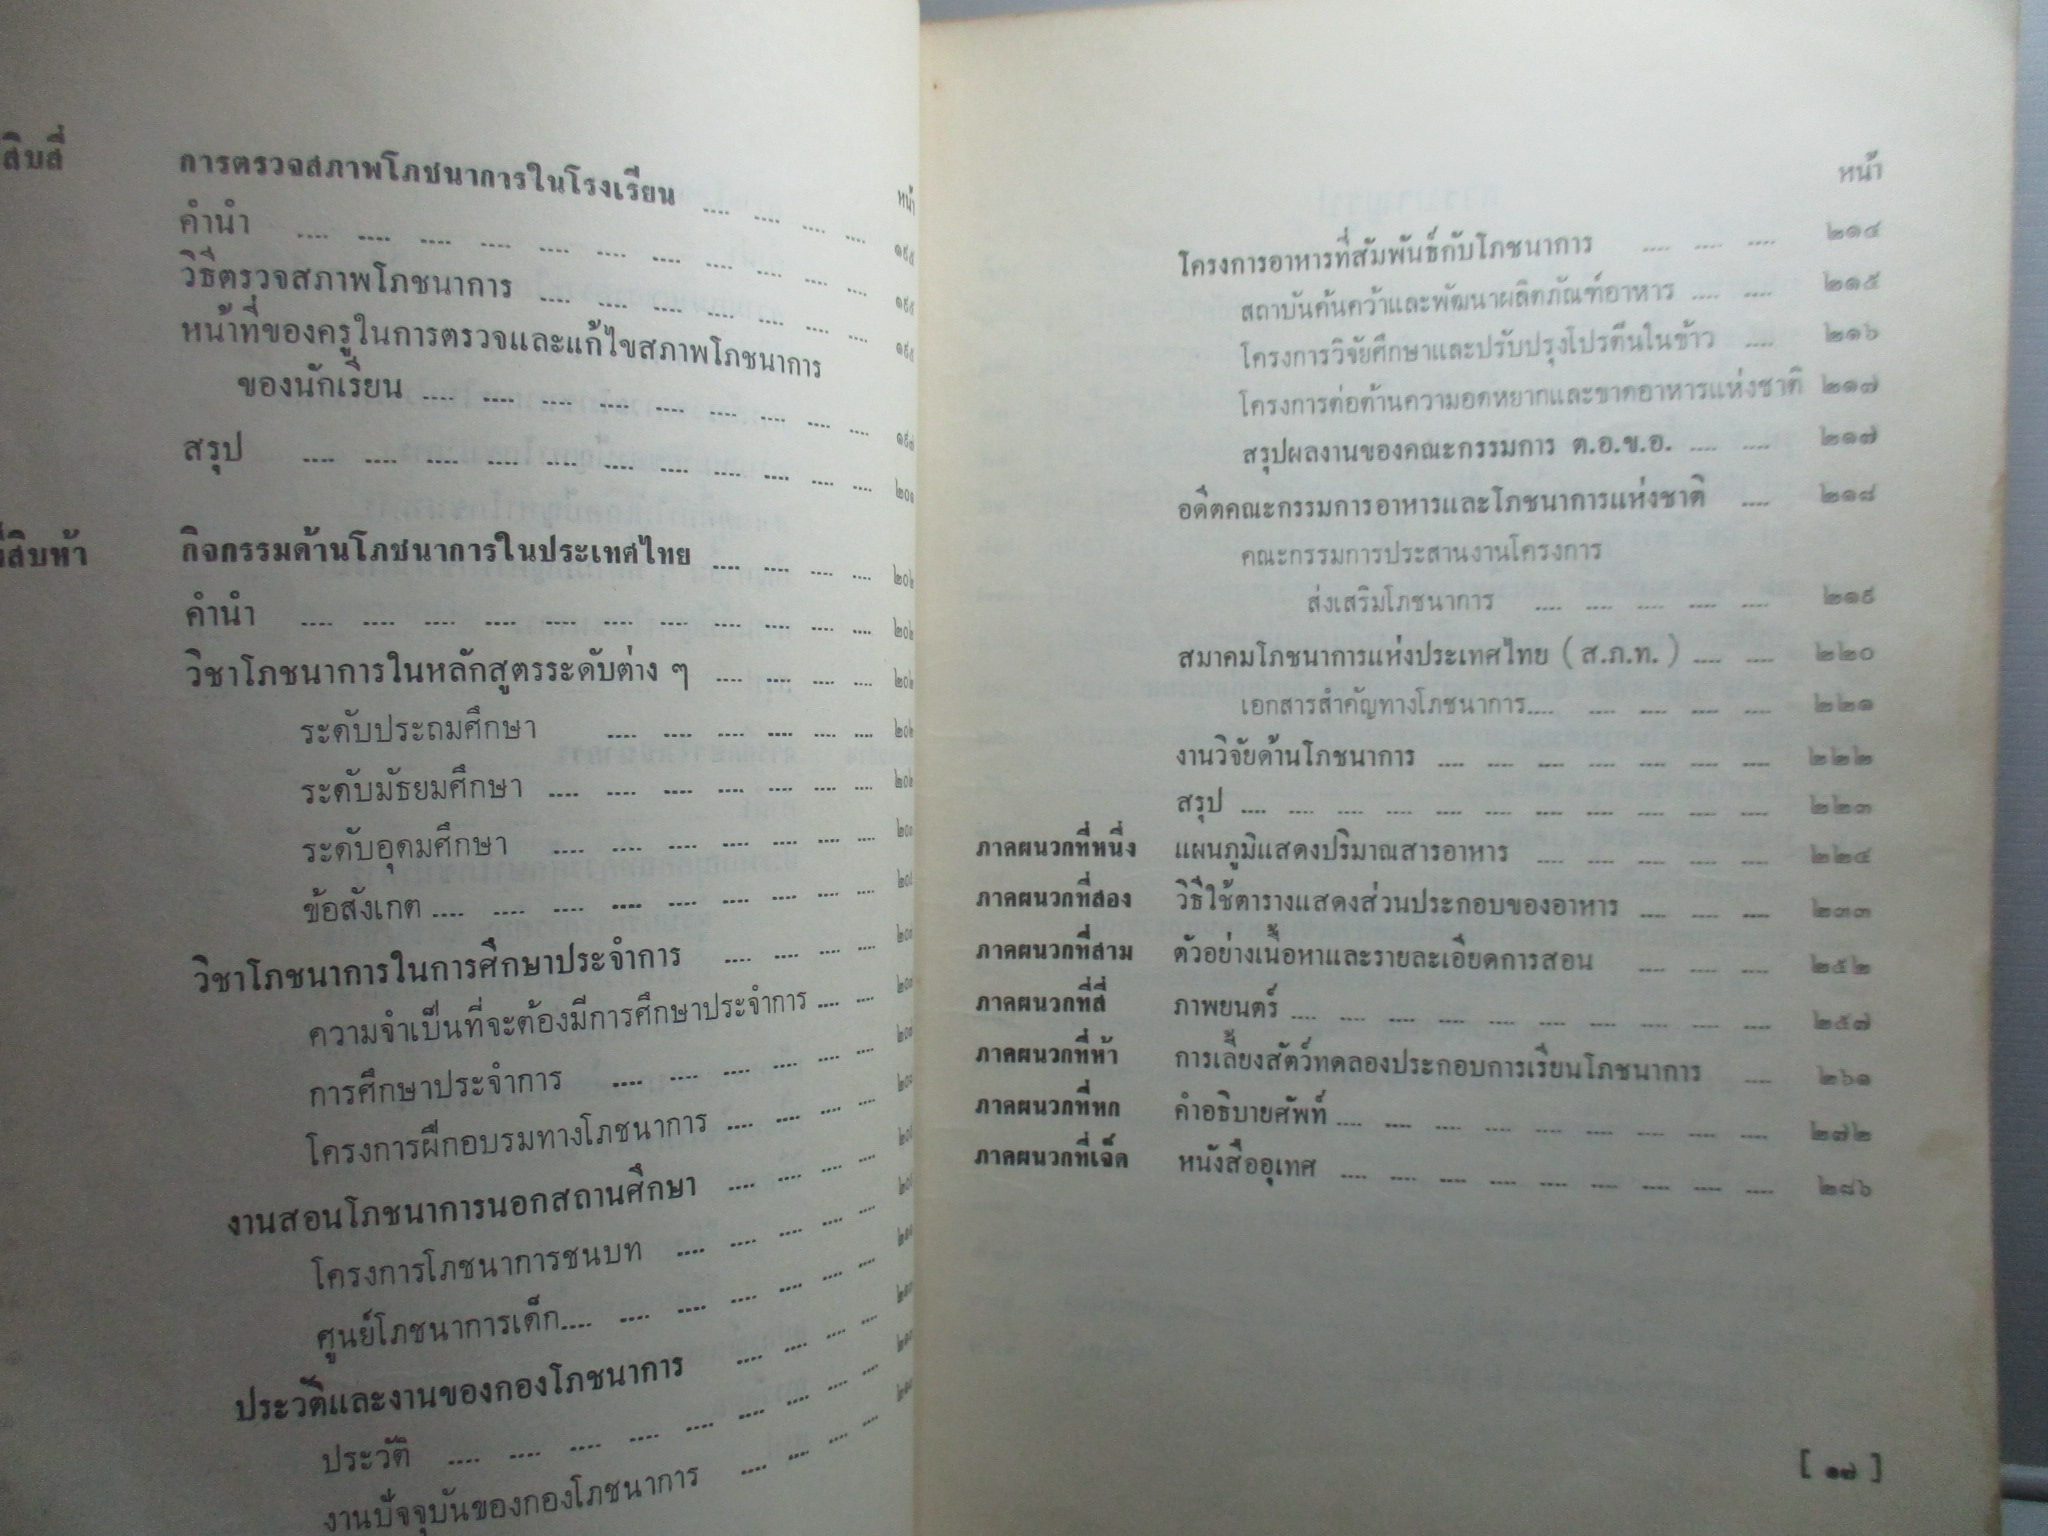 สิบสี่ การตรวจสภาพโภชนาการในโรงเรียน .... .... .... ....
หน้า
คำนำ .... .... .... .... .... .... .... .... .... .... ๑๙๕
วิธีตรวจสภาพโภชนาการ .... .... .... .... .... .... .... ๑๙๕
หน้าที่ของครูในการตรวจและแก้ไขสภาพโภชนาการ
ของนักเรียน .... .... .... .... .... .... .... .... ๑๙๗
สรุป .... .... .... .... .... .... .... .... .... .... ๒๐๑
สิบห้า กิจกรรมด้านโภชนาการในประเทศไทย .... .... .... .... ๒๐๒
คำนำ .... .... .... .... .... .... .... .... .... .... ๒๐๒
วิชาโภชนาการในหลักสูตรระดับต่าง ๆ .... .... .... .... ๒๐๒
ระดับประถมศึกษา .... .... .... .... .... ๒๐๒
ระดับมัธยมศึกษา .... .... .... .... .... .... ๒๐๒
ระดับอุดมศึกษา .... .... .... .... .... ....
ข้อสังเกต .... .... .... .... .... .... .... ....
วิชาโภชนาการในการศึกษาประจำการ .... .... .... ....
ความจำเป็นที่จะต้องมีการศึกษาประจำการ .... ....
การศึกษาประจำการ .... .... .... .... ....
โครงการฝึกอบรมทางโภชนาการ .... .... .... ....
งานสอนโภชนาการนอกสถานศึกษา .... .... .... ....
โครงการโภชนาการชนบท .... .... .... ....
ศูนย์โภชนาการเด็ก .... .... .... .... .... ....
ประวัติและงานของกองโภชนาการ .... .... .... ....
ประวัติ .... .... .... .... .... .... .... ....
งานปัจจุบันของกองโภชนาการ .... .... .... ....
หน้า
โครงการอาหารที่สัมพันธ์กับโภชนาการ .... .... .... ๒๑๔
สถาบันค้นคว้าและพัฒนาผลิตภัณฑ์อาหาร .... .... ๒๑๕
โครงการวิจัยศึกษาและปรับปรุงโปรตีนในข้าว .... ๒๑๖
โครงการต่อต้านความอดหยากและขาดอาหารแห่งชาติ ๒๑๗
สรุปผลงานของคณะกรรมการ ต.อ.ข.อ. .... .... ๒๑๗
อดีตคณะกรรมการอาหารและโภชนาการแห่งชาติ .... ๒๑๘
คณะกรรมการประสานงานโครงการ
ส่งเสริมโภชนาการ .... .... .... .... .... ๒๑๙
สมาคมโภชนาการแห่งประเทศไทย ( ส.ภ.ท. ) .... .... ๒๒๐
เอกสารสำคัญทางโภชนาการ .... .... .... .... .... ๒๒๑
งานวิจัยด้านโภชนาการ .... .... .... .... .... .... .... ๒๒๒
สรุป .... .... .... .... .... .... .... .... .... .... .... ๒๒๓
ภาคผนวกที่หนึ่ง แผนภูมิแสดงปริมาณสารอาหาร .... .... .... .... .... ๒๒๔
ภาคผนวกที่สอง วิธีใช้ตารางแสดงส่วนประกอบของอาหาร .... .... .... ๒๓๓
ภาคผนวกที่สาม ตัวอย่างเนื้อหาและรายละเอียดการสอน .... .... .... ๒๕๒
ภาคผนวกที่สี่ ภาพยนตร์ .... .... .... .... .... .... .... .... .... .... ๒๕๗
ภาคผนวกที่ห้า การเลี้ยงสัตว์ทดลองประกอบการเรียนโภชนาการ .... ๒๖๑
ภาคผนวกที่หก คำอธิบายศัพท์ .... .... .... .... .... .... .... .... .... ๒๗๒
ภาคผนวกที่เจ็ด หนังสืออุเทศ .... .... .... .... .... .... .... .... .... ๒๘๖
[ ๑๗ ]